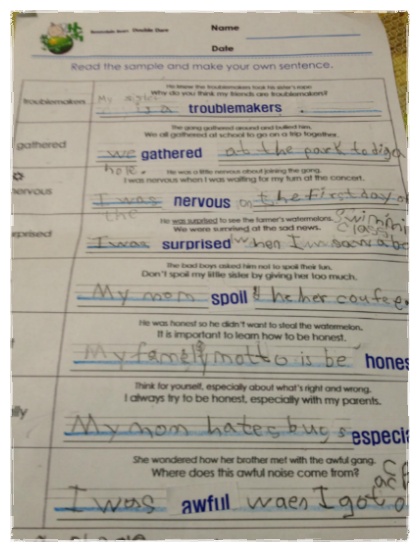 Double Dare
Name
Date
Read the sample and make your own sentence.
He knew the troublemakers took his sister's rope
Why do you think my friends are troublemakers?
troublemakers
My sister
is a troublemakers .
The gang gathered around and bullied him.
We all gathered at school to go on a trip together.
gathered
we gathered at the park to dig a
hole.
He was a little nervous about joining the gang.
I was nervous when I was waiting for my turn at the concert.
nervous
I was nervous on the first day of
the swimming
class.
He was surprised to see the farmer's watermelons.
We were surprised at the sad news.
rprised
I was surprised when I saw a
The bad boys asked him not to spoil their fun.
Don't spoil my little sister by giving her too much.
My mom spoil the her coufee
He was honest so he didn't want to steal the watermelon.
It is important to learn how to be honest.
My family motto is be hones
Think for yourself, especially about what's right and wrong.
I always try to be honest, especially with my parents.
lly
My mom hates bugs especia
She wondered how her brother met with the awful gang.
Where does this awful noise come from?
I was awful waen I got